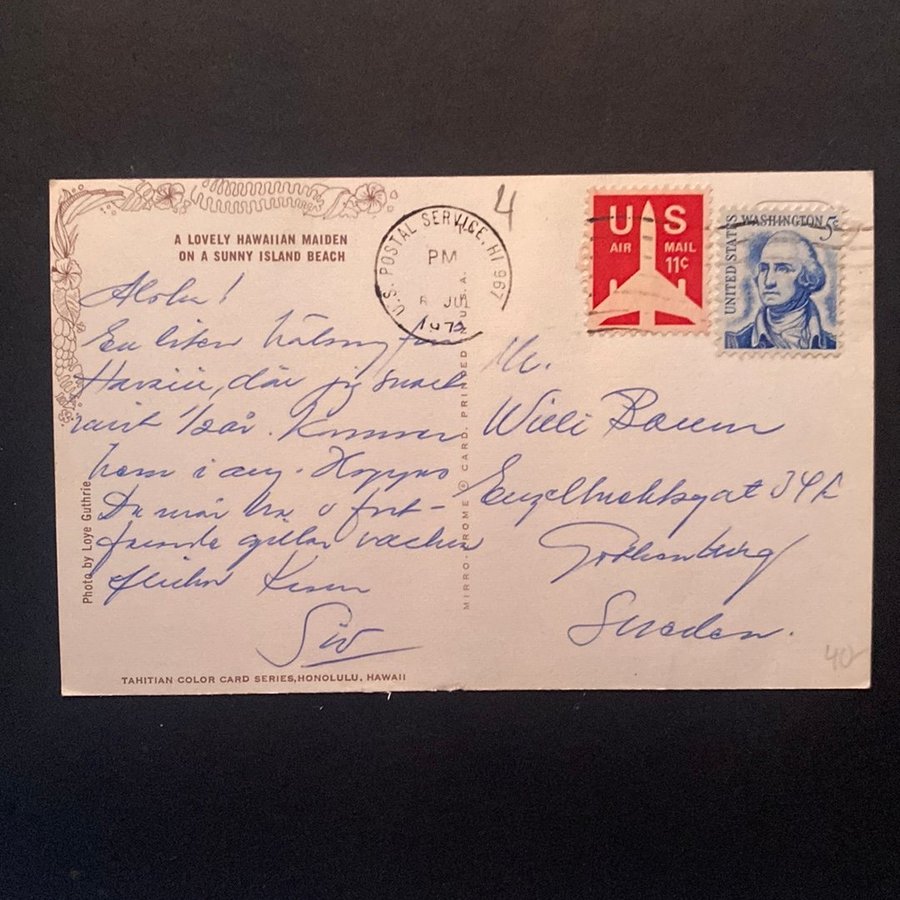 4
A LOVELY HAWAIIAN MAIDEN
ON A SUNNY ISLAND BEACH
U.S. POSTAL SERVICE, HI 967
PM
1972
US
AIR MAIL
11¢
UNITED STATES
WASHINGTON 5¢
Aloha!
En liten hälsning från
Hawaii, där jag snart
varit 1/2 år. Kommer
hem i aug. Hoppas
Du mår bra o fort-
farande gillar vackra
flickor Kram
Siv
Mr.
Willi Baum
34
Gothenburg
Sweden.
Photo by Loye Guthrie
MIRRO-KROME ® CARD, PRINTED IN U.S.A.
TAHITIAN COLOR CARD SERIES, HONOLULU, HAWAII
40